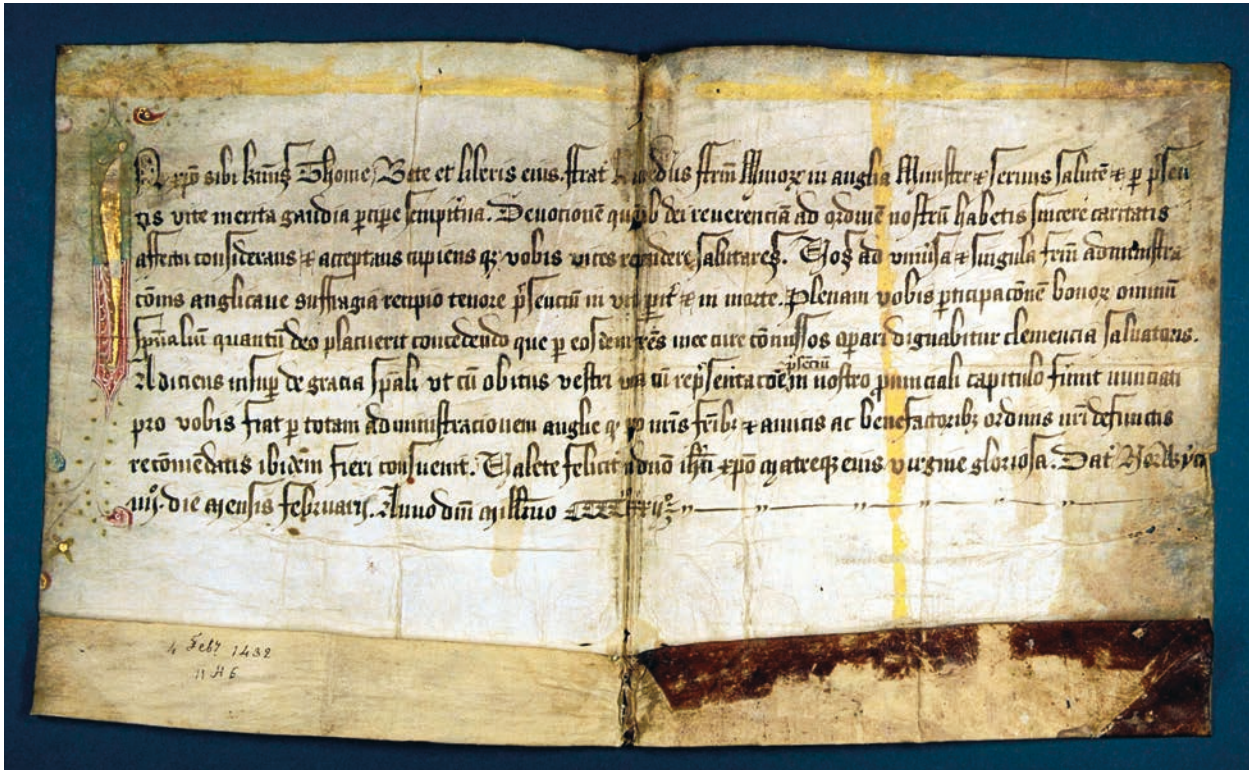 In xpō sibi kariss Thome Bete et liberis eius. ffrat dus ffrm Minoꝝ in anglia Minister ⁊ servus salutē ⁊ ꝑ p̄sen
tis vite merita gaudia ꝑcipe sempit̄na. Devotionē ob dei reverenciā ad ordinē nostrū habetis sincere caritatis
affectu considerans ⁊ acceptans cupiens qꝫ vobis vices salutares. Vos ad vniūsa ⁊ singula frm̄ administra
cōnis anglicane suffragia recipio tenore p̄senciū in vita ꝑit̄ ⁊ in morte. Plenam vobis ꝑticipacōnē bonoꝝ omniū
sp̄ualiū quantū deo placuerit concedendo que ꝑ eosdem mee cure cōmissos oꝑari dignabitur clemencia salvatoris.
Adiciens insuꝑ de gracia sp̄ali vt cū obitus vestri cū rep̄sentacōe p̄senciū in nostro provinciali capitulo fūint nunciati
pro vobis fiat ꝑ totam administracionem anglie qꝫ pro nr̄is fr̄ibꝫ ⁊ amicis ac benefactoribꝫ ordinis nr̄i defunctis
recōmēdatis ibidem fieri consuevit. Valete felicit̄ dn̄o ih̄u xpō matreqꝫ eius virgine gloriosa. Dat̄ Norwyci
iiijº. die mensis februarij. Anno dn̄i millīmo CCCCxxxijº
4 Feb? 1432
11 H 6